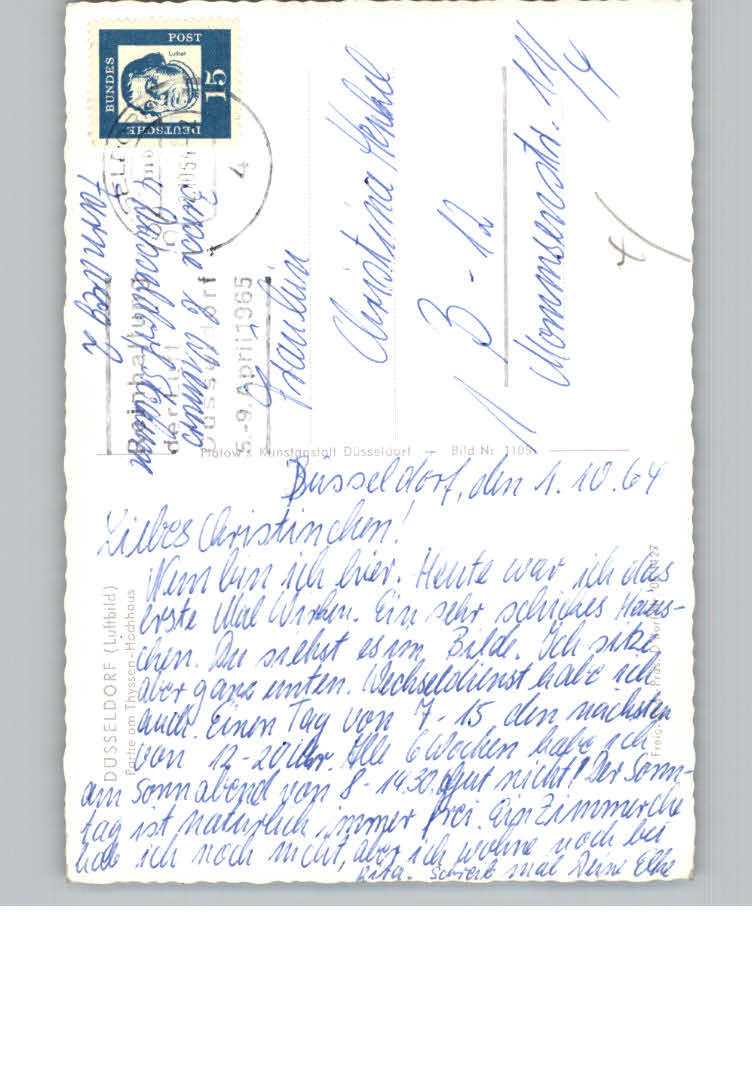 DEUTSCHE
BUNDES
POST
15
Luther
4
Beinhaltung
der Luft
Düsseldorf
5.-9. April 1965
4 Düsseldorf
Turmweg 2
Fräulein
Christina Henkel
1 B-12
Mommsenstr. 11
/4
Kunstanstalt Düsseldorf — Bild Nr. 1105
DÜSSELDORF (Luftbild)
Partie am Thyssen-Hochhaus
Düsseldorf, den 1.10.64
Liebes Christinchen!
Nun bin ich hier. Heute war ich das
erste Mal Wirken. Ein sehr schickes Häus-
chen. Du siehst es im Bilde. Ich sitze
aber ganz unten. Wechseldienst habe ich
auch. Einen Tag von 7-15 den nächsten
von 12-20 Uhr. Alle 6 Wochen habe ich
am Sonnabend von 8-14.30. Gut nicht! Der Sonn-
tag ist natürlich immer frei. Ein Zimmerche
habe ich noch nicht, aber ich wohne noch bei
Rita. Schreib mal Deine Elke